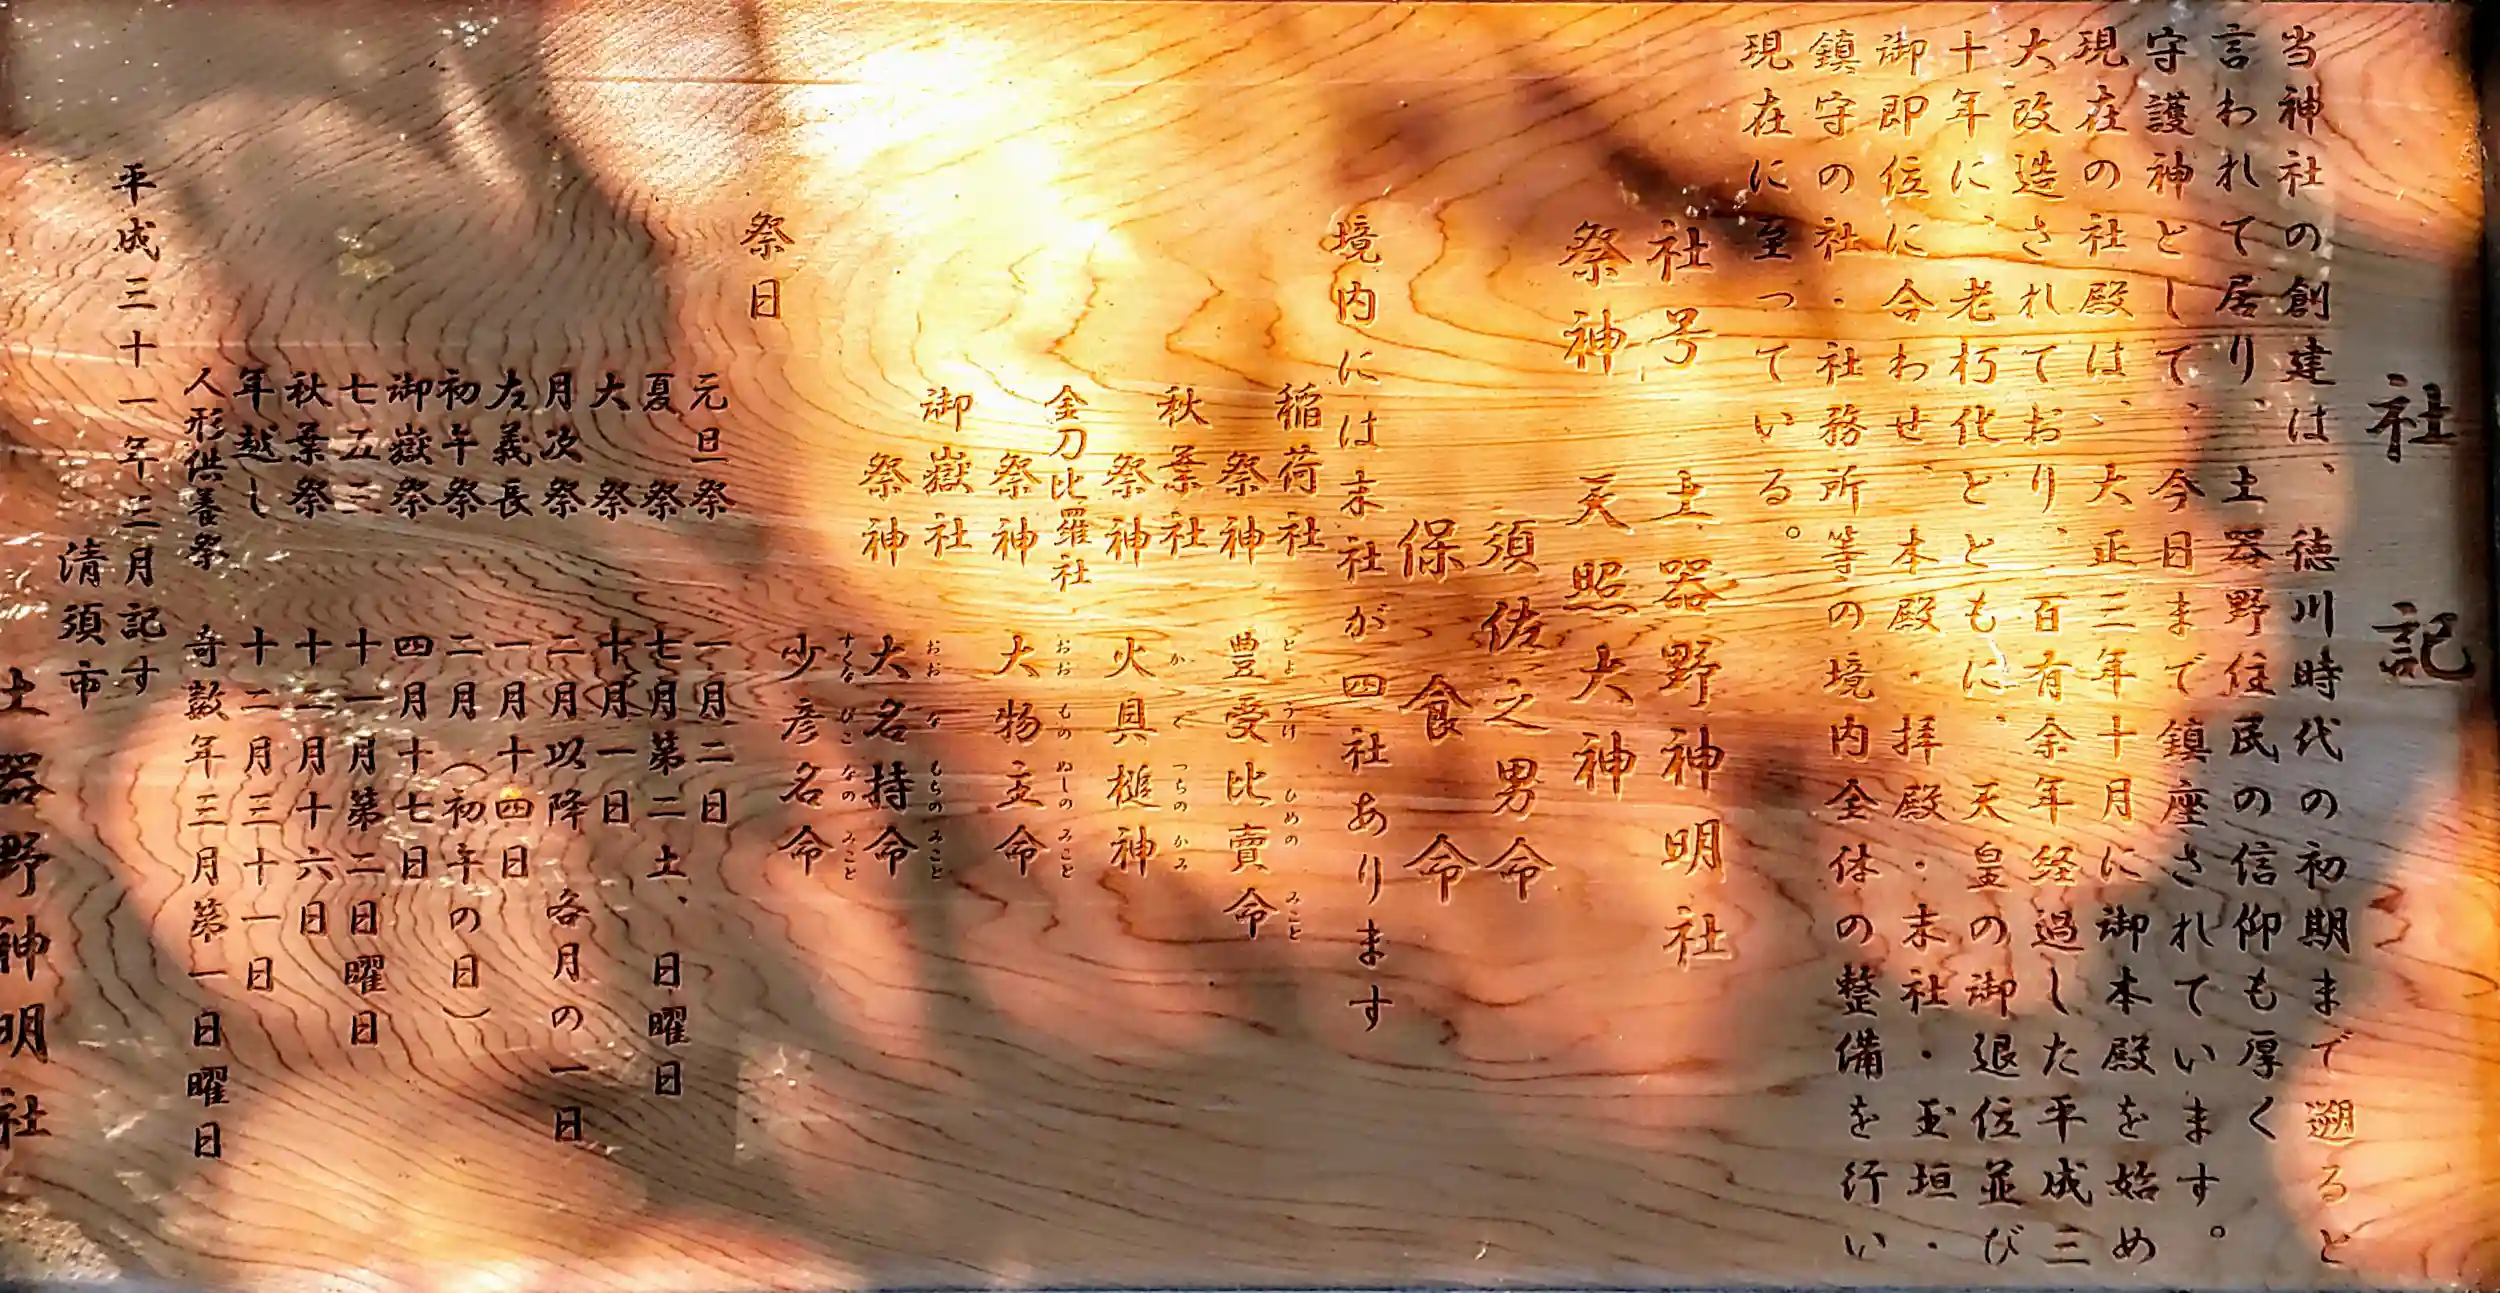 社記
当神社の創建は、徳川時代の初期まで遡ると
言われて居り、土器野住民の信仰も厚く
守護神として、今日まで鎮座されています。
現在の社殿は、大正三年十月に御本殿を始め
大改造されており、百有余年経過した平成三
十年に、老朽化とともに、天皇の御退位並び
御即位に合わせ、本殿・拝殿・末社・玉垣・
鎮守の社・社務所等の境内全体の整備を行い
現在に至っている。
社号 土器野神明社
祭神 天照大神
須佐之男命
保食命
境内には末社が四社あります
稲荷社
祭神 豊受比賣命
とようけひめのみこと
秋葉社
祭神 火具槌神
かぐつちのかみ
金刀比羅社
祭神 大物主命
おおものぬしのみこと
御嶽社
祭神 大名持命
おおなもちのみこと
少彦名命
すくなびこなのみこと
祭日
元旦祭 一月一日
夏祭 七月第二土、日曜日
大祭 十月一日
月次祭 二月以降 各月の一日
左義長 一月十四日
初午祭 二月(初午の日)
御嶽祭 四月十七日
七五三 十一月第二日曜日
秋葉祭 十二月十六日
年越し 十二月三十一日
人形供養祭 奇数年三月第一日曜日
平成三十一年三月記す
清須市
土器野神明社